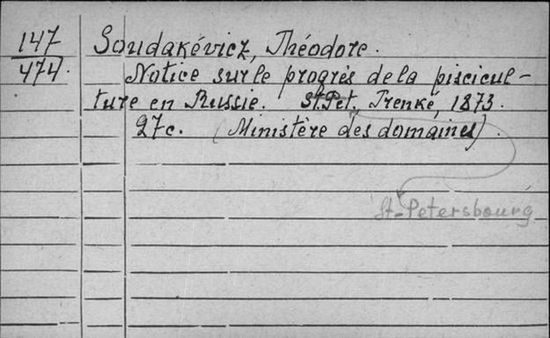 147
474.
Soudakévicz, Théodore.
Notice sur le progrès de la piscicul-
ture en Russie. St. Pet. Trenké, 1873.
27c. (Ministère des domaines).
St-Petersbourg